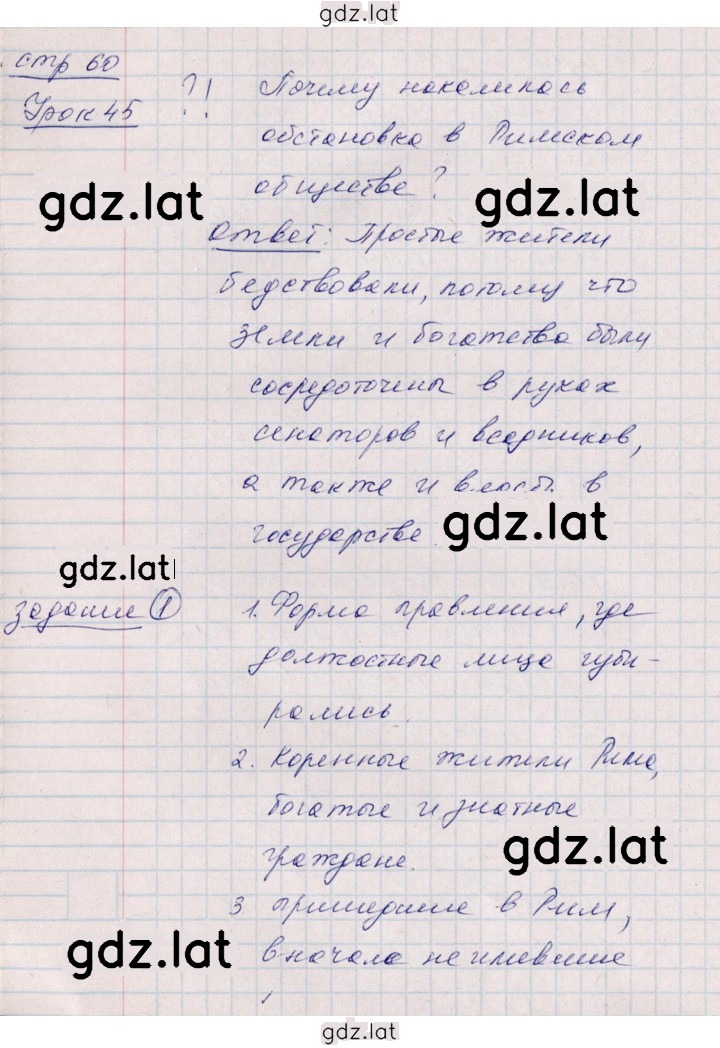 gdz.lat
стр 60
Урок 45
?! Почему накалилась
обстановка в Римском
обществе?
gdz.lat
gdz.lat
Ответ: Простые жители
бедствовали, потому что
земли и богатства были
сосредоточены в руках
сенаторов и всадников,
а также и власть в
государстве.
gdz.lat
gdz.lat
задание 1
1. Форма правления, где
должостные лица
рались.
2. Коренные жители Рима,
богатые и знатные
граждане.
gdz.lat
3 пришедшие в Рим,
вначале не имевшие
gdz.lat
gdz.lat